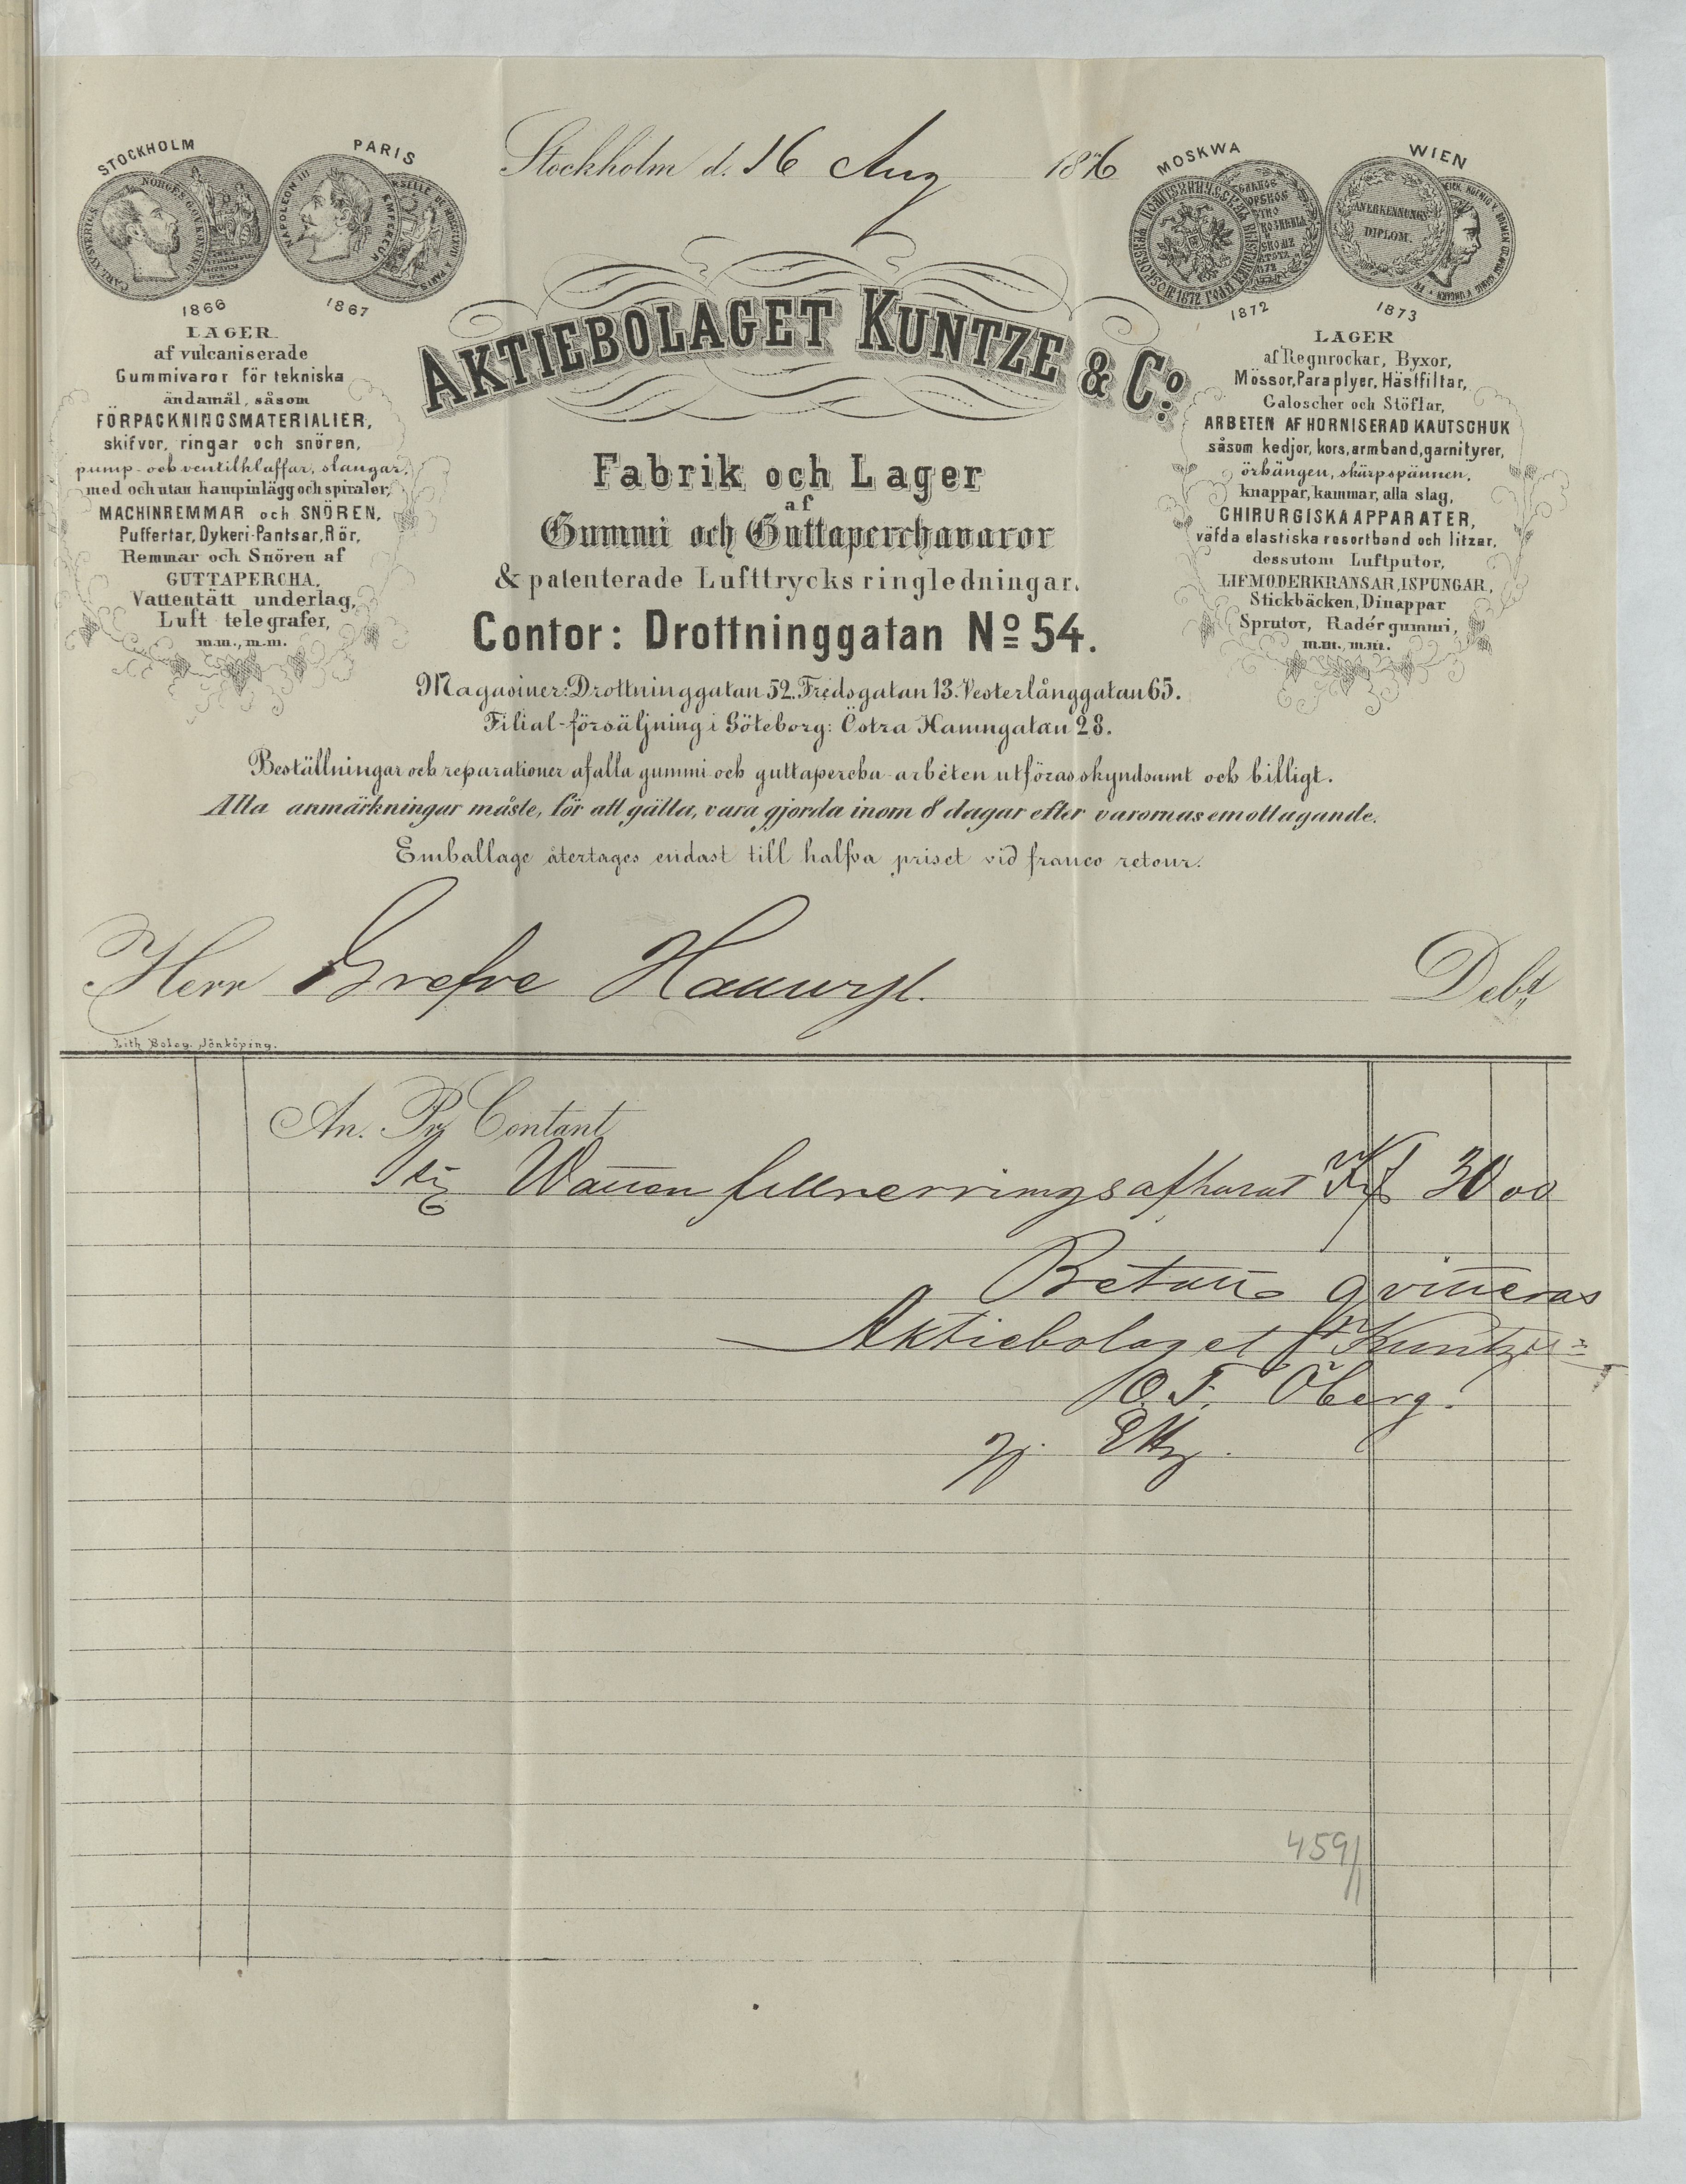 Stockholm d. 16 Aug 1876
STOCKHOLM
PARIS
CARL XV SVERIGES NORGES G. O. V. KONUNG
NAPOLEON III EMPEREUR
1866
1867
MOSKWA
WIEN
ANERKENNUNGS
DIPLOM.
1872
1873
AKTIEBOLAGET KUNTZE & Co.
Fabrik och Lager
af
Gummi och Guttaperchavaror
& patenterade Lufttrycksringledningar.
Contor: Drottninggatan No 54.
Magasiner: Drottninggatan 52. Fredsgatan 13. Vesterlånggatan 65.
Filial-försäljning i Göteborg: Östra Hamngatan 28.
LAGER
af vulcaniserade
Gummivaror för tekniska
ändamål, såsom
FÖRPACKNINGSMATERIALIER,
skifvor, ringar och snören,
pump- och ventilklaffar, slangar,
med och utan hampinlägg och spiraler,
MACHINREMMAR och SNÖREN,
Puffertar, Dykeri-Pantsar, Rör,
Remmar och Snören af
GUTTAPERCHA,
Vattentätt underlag,
Luft telegrafer,
m.m., m.m.
LAGER
af Regnrockar, Byxor,
Mössor, Paraplyer, Hästfiltar,
Galoscher och Stöflar,
ARBETEN AF HORNISERAD KAUTSCHUK
såsom kedjor, kors, armband, garnityrer,
örhängen, skärpspännen,
knappar, kammar, alla slag,
CHIRURGISKA APPARATER,
väfda elastiska resortband och litzer,
dessutom Luftputor,
LIFMODERKRANSAR, ISPUNGAR,
Stickbäcken, Dinappar
Sprutor, Radérgummi,
m.m., m.m.
Beställningar och reparationer af alla gummi och guttapercha-arbeten utföras skyndsamt och billigt.
Alla anmärkningar måste, för att gälla, vara gjorda inom 8 dagar efter varornas emottagande.
Emballage återtages endast till halfva priset vid franco retour.
Herr Grefve Hallwyl. Debt
Lith. Bolag. Jönköping.
An. Pr Contant
Watten 30 00
Betalt qvitteras
Aktiebolaget Kuntze
O. F. Öberg.
459